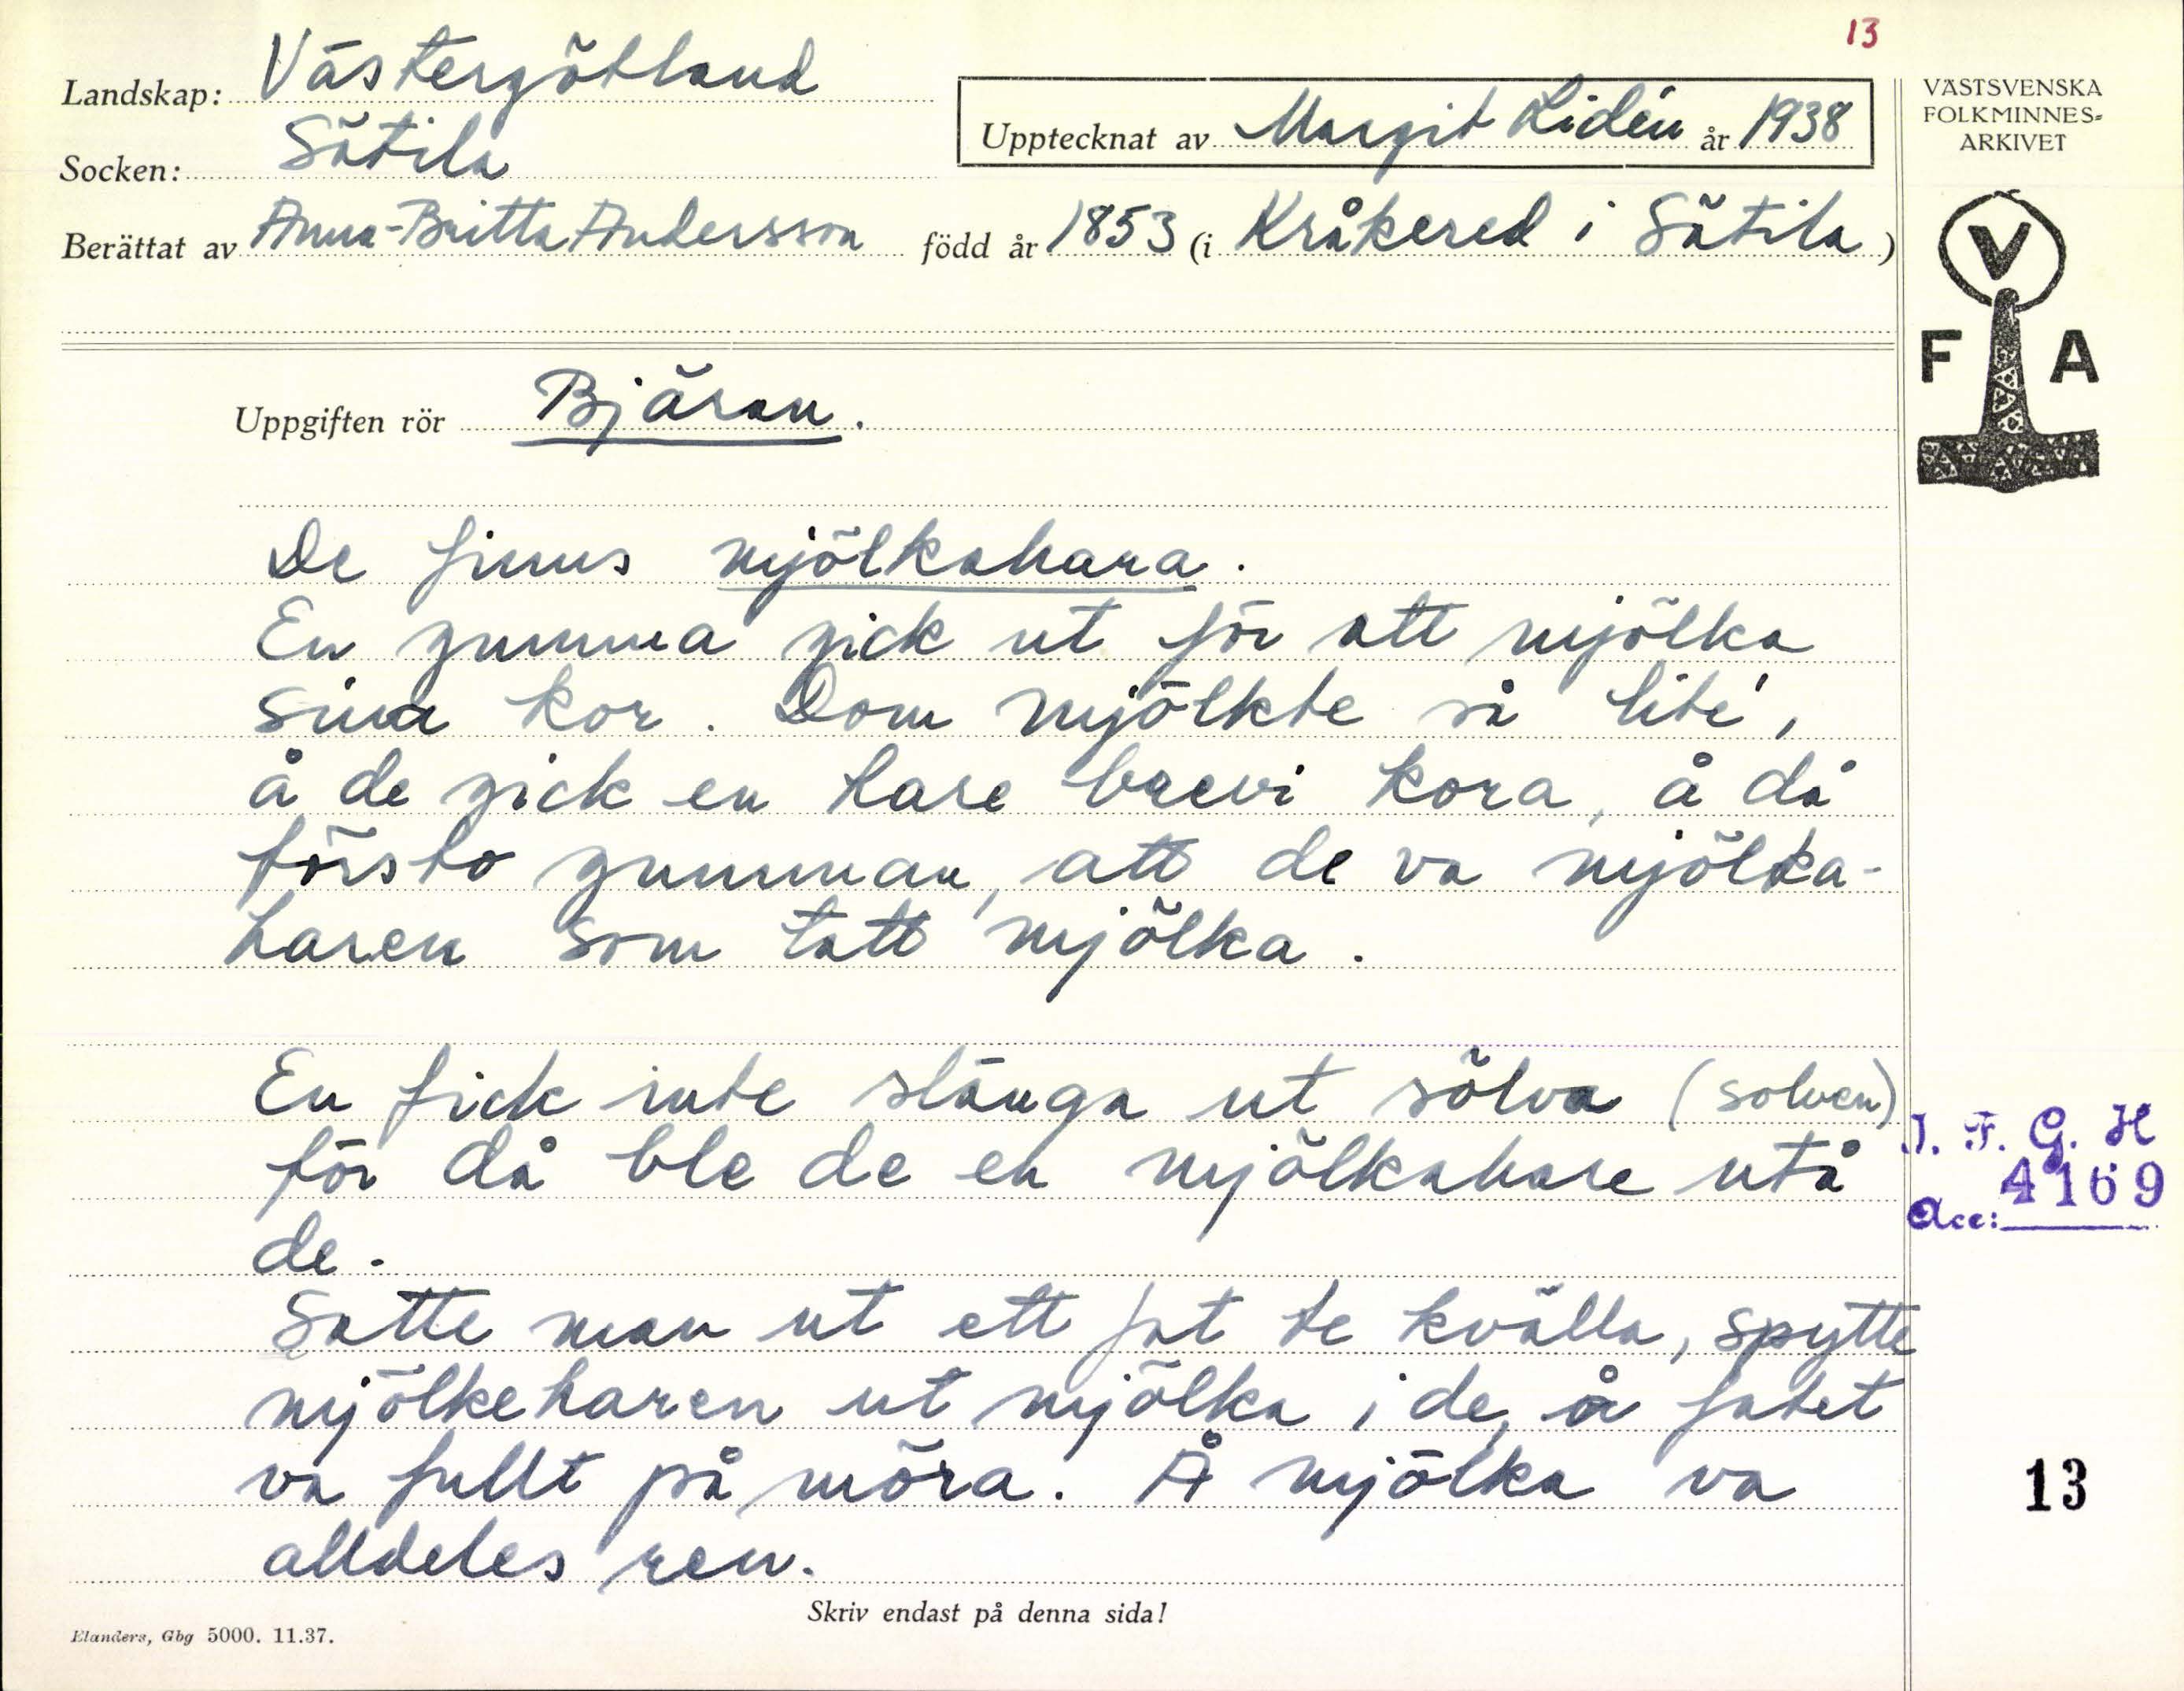 13
Landskap: Västergötland
Socken: Sätila
Upptecknat av Margit Lidén år 1938
Berättat av Anna-Britta Andersson född år 1853 (i Kråkered i Sätila)
VÄSTSVENSKA
FOLKMINNES=
ARKIVET
V
F A
Uppgiften rör Bjäran.
De finns mjölkahara.
En gumma gick ut för att mjölka
sina kor. Dom mjölkte så lite',
å de gick en hare brevi kora, å då
försto gumman, att de va mjölka-
haren som tatt mjölka.
En fick inte slänga ut sölva (solven)
för då ble de en mjölkahare utå
de.
Satte man ut ett fat te kvälla, spytte
mjölkeharen ut mjölka i de, å fatet
va fullt på möra. Å mjölka va
alldeles ren.
I. F. G. H
Acc: 4169
13
Skriv endast på denna sida!
Elanders, Gbg 5000. 11.37.